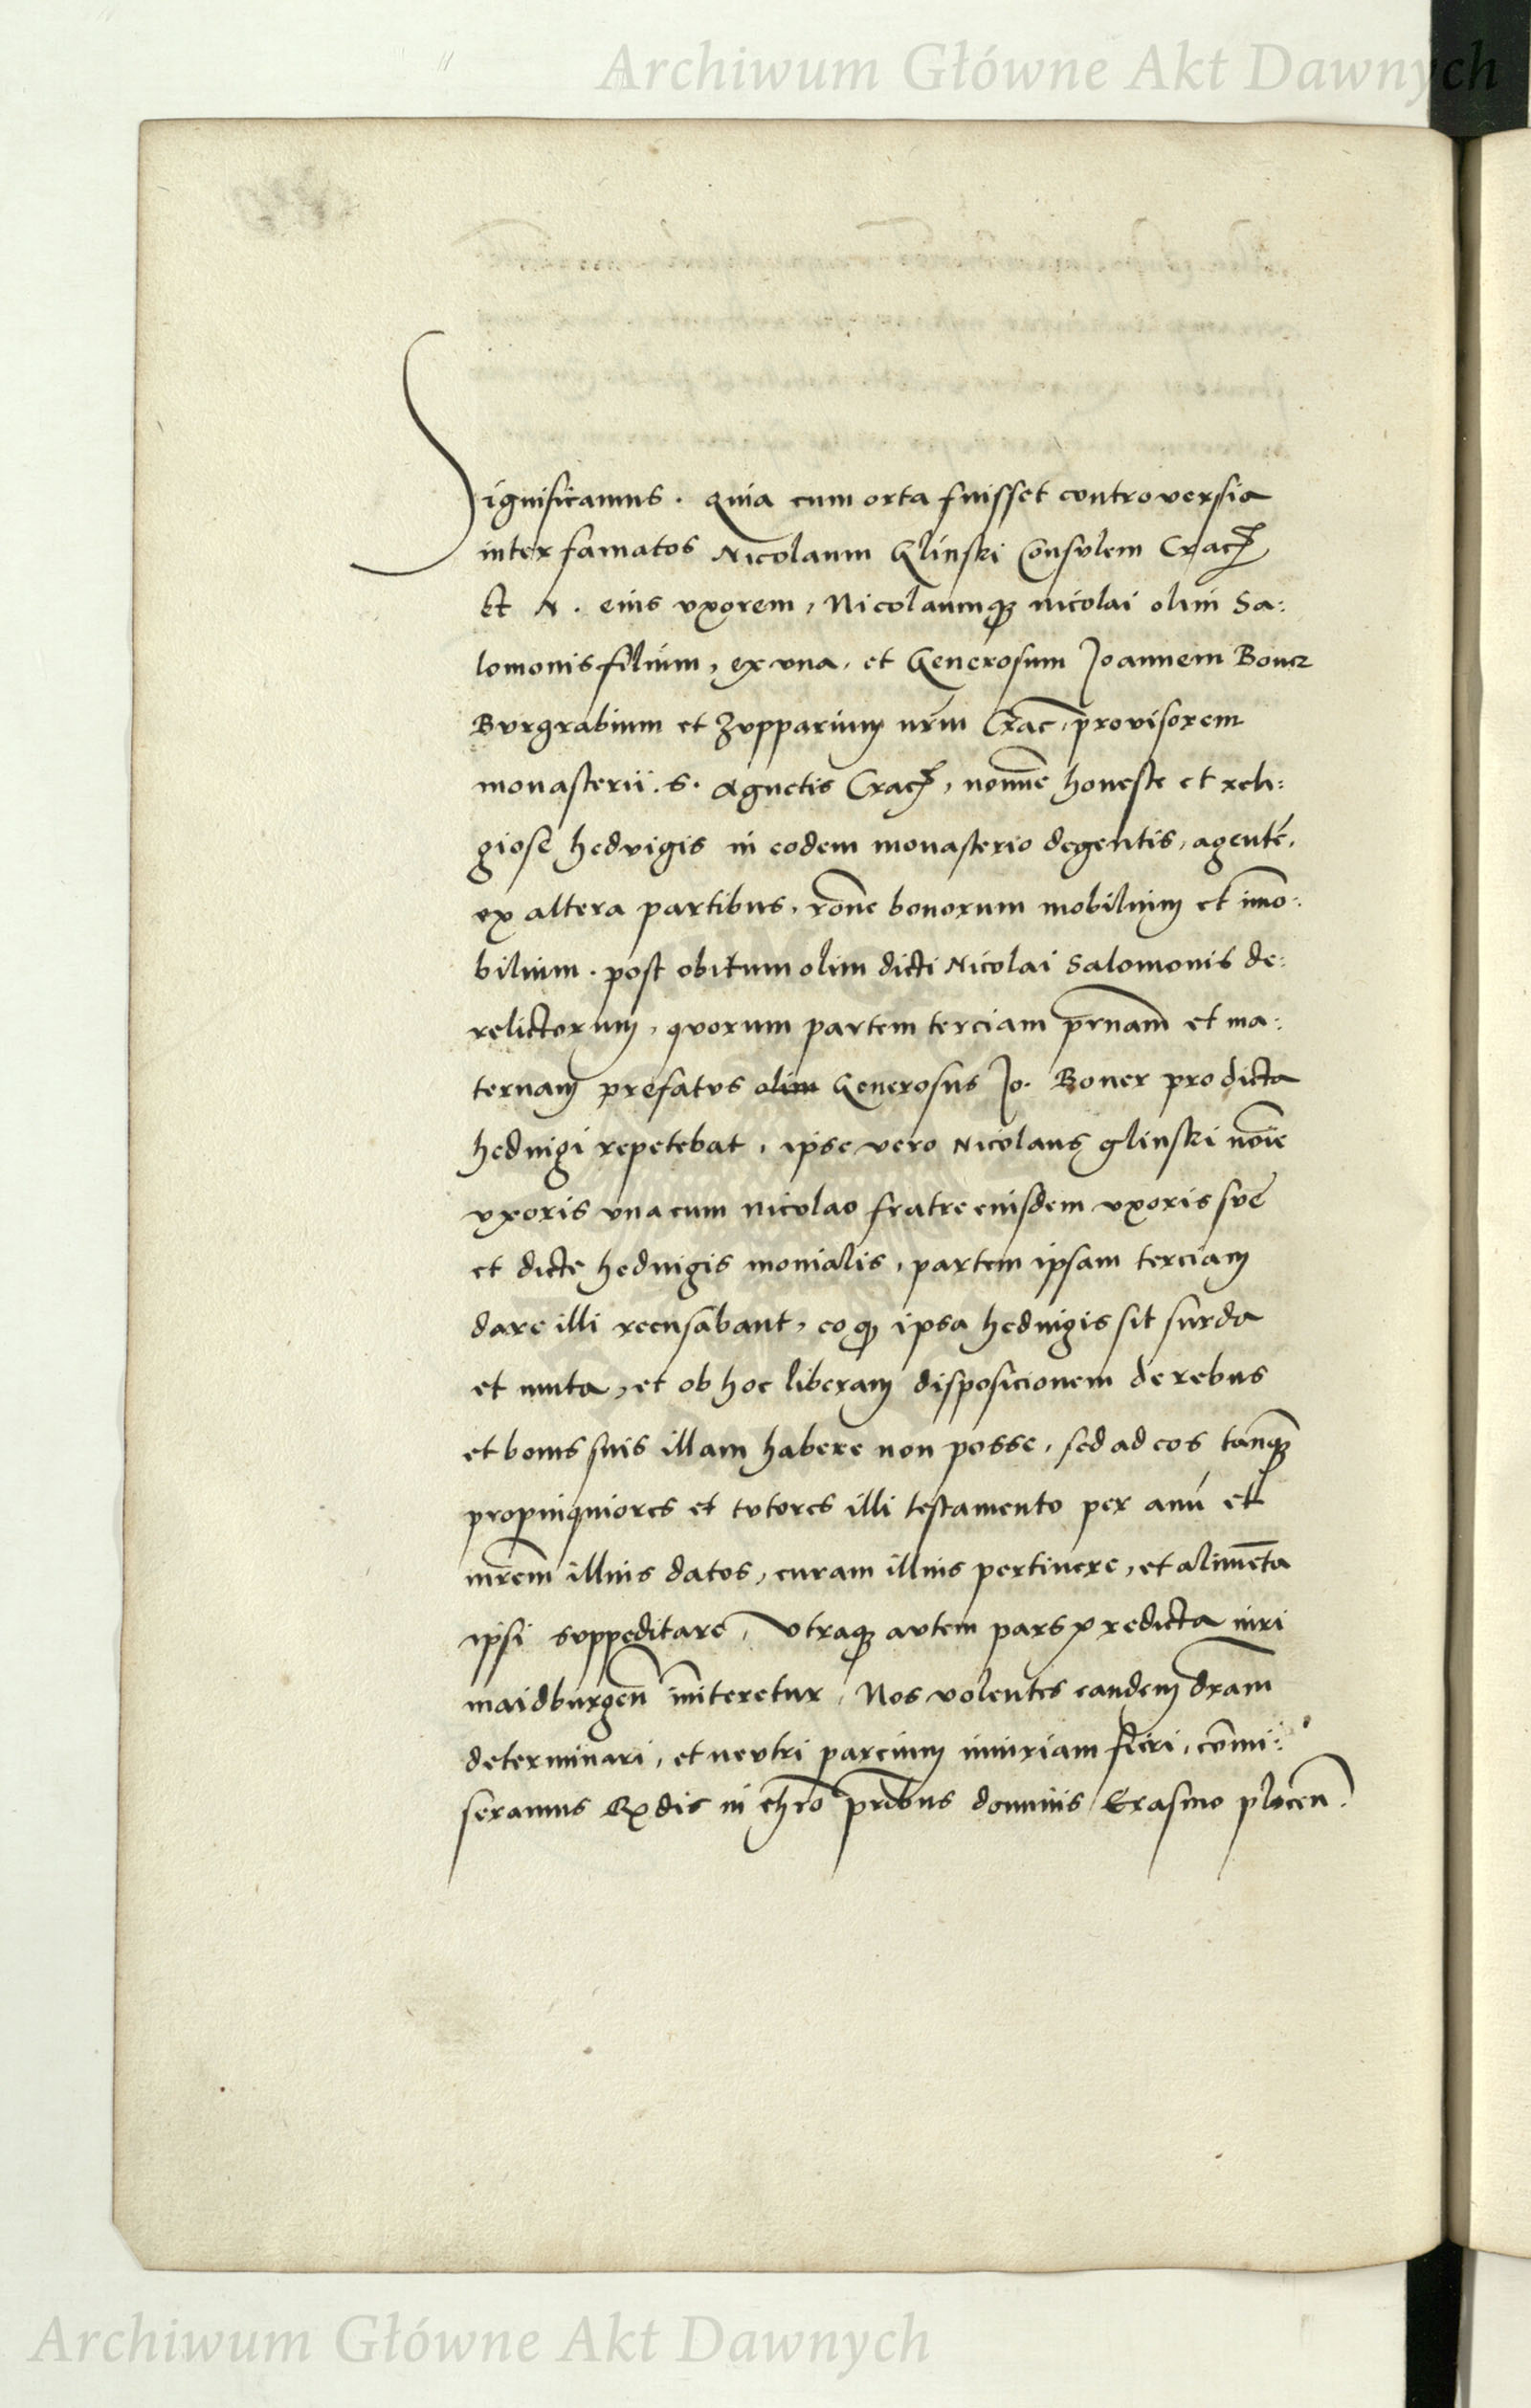 Archiwum Główne Akt Dawnych
Significamus . Quia cum orta fuisset controversia
inter famatos Nicolaum Glinski Consulem Crac
Et N . eius uxorem, Nicolaumq nicolai olim Sa:
lomonis filium, ex una, et Generosum Joannem Boner
Burgrabium et Zupparium nrm Crac, provisorem
monasterii . S. Agnetis Crac, nomne honeste et reli:
giose heduigis in eodem monasterio degentis, agente,
ex altera partibus, rone bonorum mobilium et imo:
bilium . post obitum olim dicti Nicolai Salomonis de:
relictorum, quorum partem terciam prnam et ma:
ternam prefatus olim Generosus Jo. Boner pro dicta
heduigi repetebat, ipse vero Nicolaus glinski noie
uxoris una cum nicolao fratre eiusdem uxoris sue
et dicte heduigis monialis, partem ipsam terciam
dare illi recusabant, eo q ipsa heduigis sit surda
et muta, et ob hoc liberam disposicionem de rebus
et bonis suis illam habere non posse, sed ad eos tanq
propinquiores et tutores illi testamento per auu et
mrem illius datos, curam illius pertinere, et alimeta
ipsi suppeditare, Utraq autem pars predicta iuri
maidburgen initeretur, Nos volentes eandem dram
determinari, et neutri parcium iniuriam fieri, comi:
seramus Rdis in chro pribus dominis Erasmo plocen.
Archiwum Główne Akt Dawnych